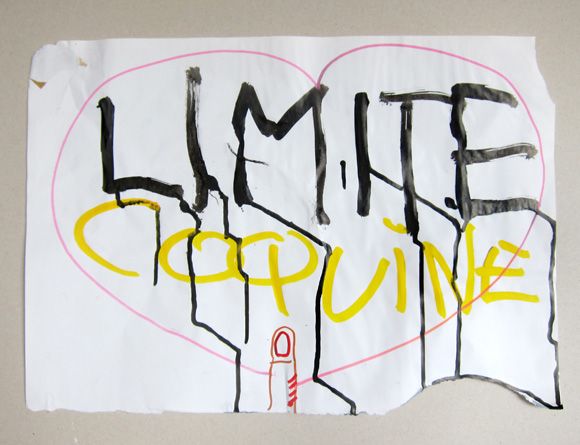 LIMITE
COQUINE